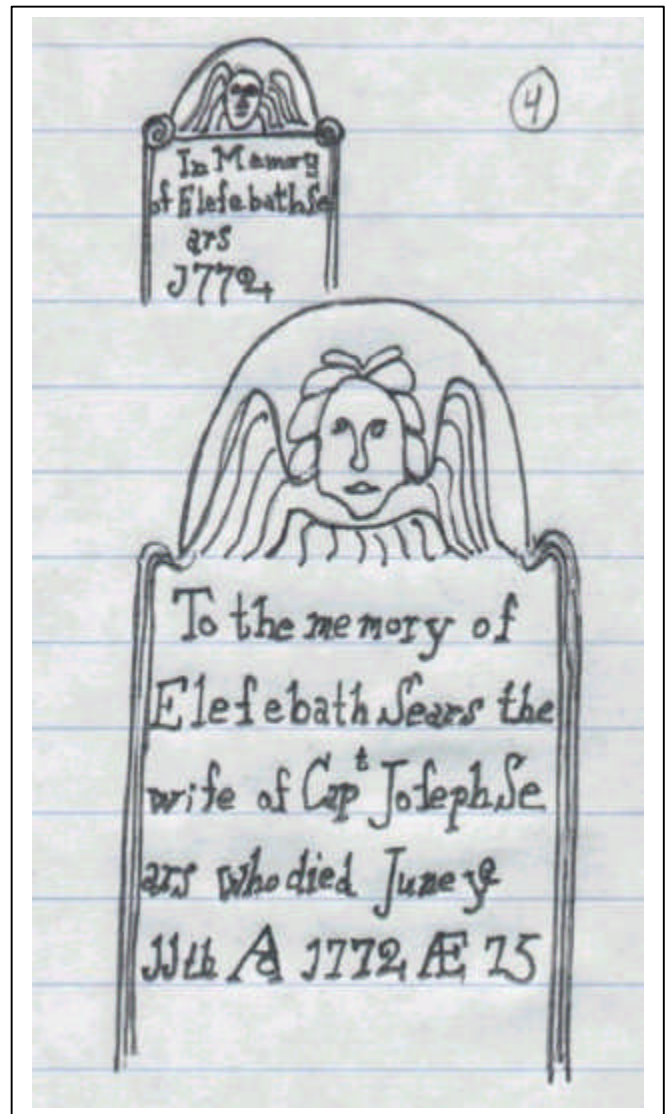 4
In Memory
of Elesebath Se
ars
1772
To the memory of
Elesebath Sears the
wife of Capt Joseph Se
ars who died June ye
11th AD 1772 Æ 75